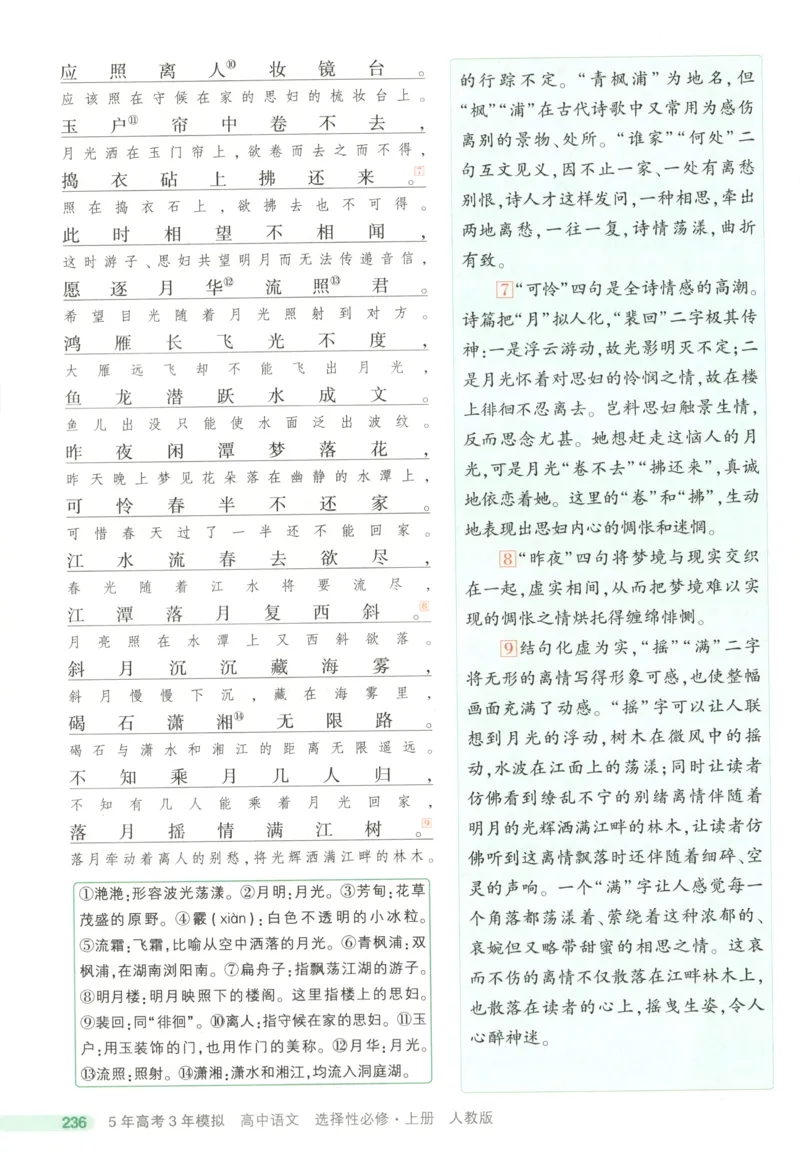 应照离人⑩妆镜台。
应该照在守候在家的思妇的梳妆台上。
玉户⑪帘中卷不去，
月光洒在玉门帘上，欲卷而去之而不得，
捣衣砧上拂还来。7
照在捣衣石上，欲拂去也不可得。
此时相望不相闻，
这时游子、思妇共望明月而无法传递音信，
愿逐月华⑫流照⑬君。
希望目光随着月光照射到对方。
鸿雁长飞光不度，
大雁远飞却不能飞出月光，
鱼龙潜跃水成文。
鱼儿出没只能使水面泛出波纹。
昨夜闲潭梦落花，
昨天晚上梦见花朵落在幽静的水潭上，
可怜春半不还家。
可惜春天过了一半还不能回家。
江水流春去欲尽，
春光随着江水将要流尽，
江潭落月复西斜。8
月亮照在水潭上又西斜欲落。
斜月沉沉藏海雾，
斜月慢慢下沉，藏在海雾里，
碣石潇湘⑭无限路。
碣石与潇水和湘江的距离无限遥远。
不知乘月几人归，
不知有几人能乘着月光回家，
落月摇情满江树。9
落月牵动着离人的别愁，将光辉洒满江畔的林木。
①滟滟：形容波光荡漾。②月明：月光。③芳甸：花草
茂盛的原野。④霰（xiàn）：白色不透明的小冰粒。
⑤流霜：飞霜，比喻从空中洒落的月光。⑥青枫浦：双
枫浦，在湖南浏阳南。⑦扁舟子：指飘荡江湖的游子。
⑧明月楼：明月映照下的楼阁。这里指楼上的思妇。
⑨裴回：同“徘徊”。⑩离人：指守候在家的思妇。⑪玉
户：用玉装饰的门，也用作门的美称。⑫月华：月光。
⑬流照：照射。⑭潇湘：潇水和湘江，均流入洞庭湖。
的行踪不定。“青枫浦”为地名，但
“枫”“浦”在古代诗歌中又常用为感伤
离别的景物、处所。“谁家”“何处”二
句互文见义，因不止一家、一处有离愁
别恨，诗人才这样发问，一种相思，牵出
两地离愁，一往一复，诗情荡漾，曲折
有致。
7“可怜”四句是全诗情感的高潮。
诗篇把“月”拟人化，“裴回”二字极其传
神：一是浮云游动，故光影明灭不定；二
是月光怀着对思妇的怜悯之情，故在楼
上徘徊不忍离去。岂料思妇触景生情，
反而思念尤甚。她想赶走这恼人的月
光，可是月光“卷不去”“拂还来”，真诚
地依恋着她。这里的“卷”和“拂”，生动
地表现出思妇内心的惆怅和迷惘。
8“昨夜”四句将梦境与现实交织
在一起，虚实相间，从而把梦境难以实
现的惆怅之情烘托得缠绵悱恻。
9结句化虚为实，“摇”“满”二字
将无形的离情写得形象可感，也使整幅
画面充满了动感。“摇”字可以让人联
想到月光的浮动，树木在微风中的摇
动，水波在江面上的荡漾；同时让读者
仿佛看到缭乱不宁的别绪离情伴随着
明月的光辉洒满江畔的林木，让读者仿
佛听到这离情飘落时还伴随着细碎、空
灵的声响。一个“满”字让人感觉每一
个角落都荡漾着、萦绕着这种浓郁的、
哀婉但又略带甜蜜的相思之情。这哀
而不伤的离情不仅散落在江畔林木上，
也散落在读者的心上，摇曳生姿，令人
心醉神迷。
236 5年高考3年模拟 高中语文 选择性必修·上册 人教版